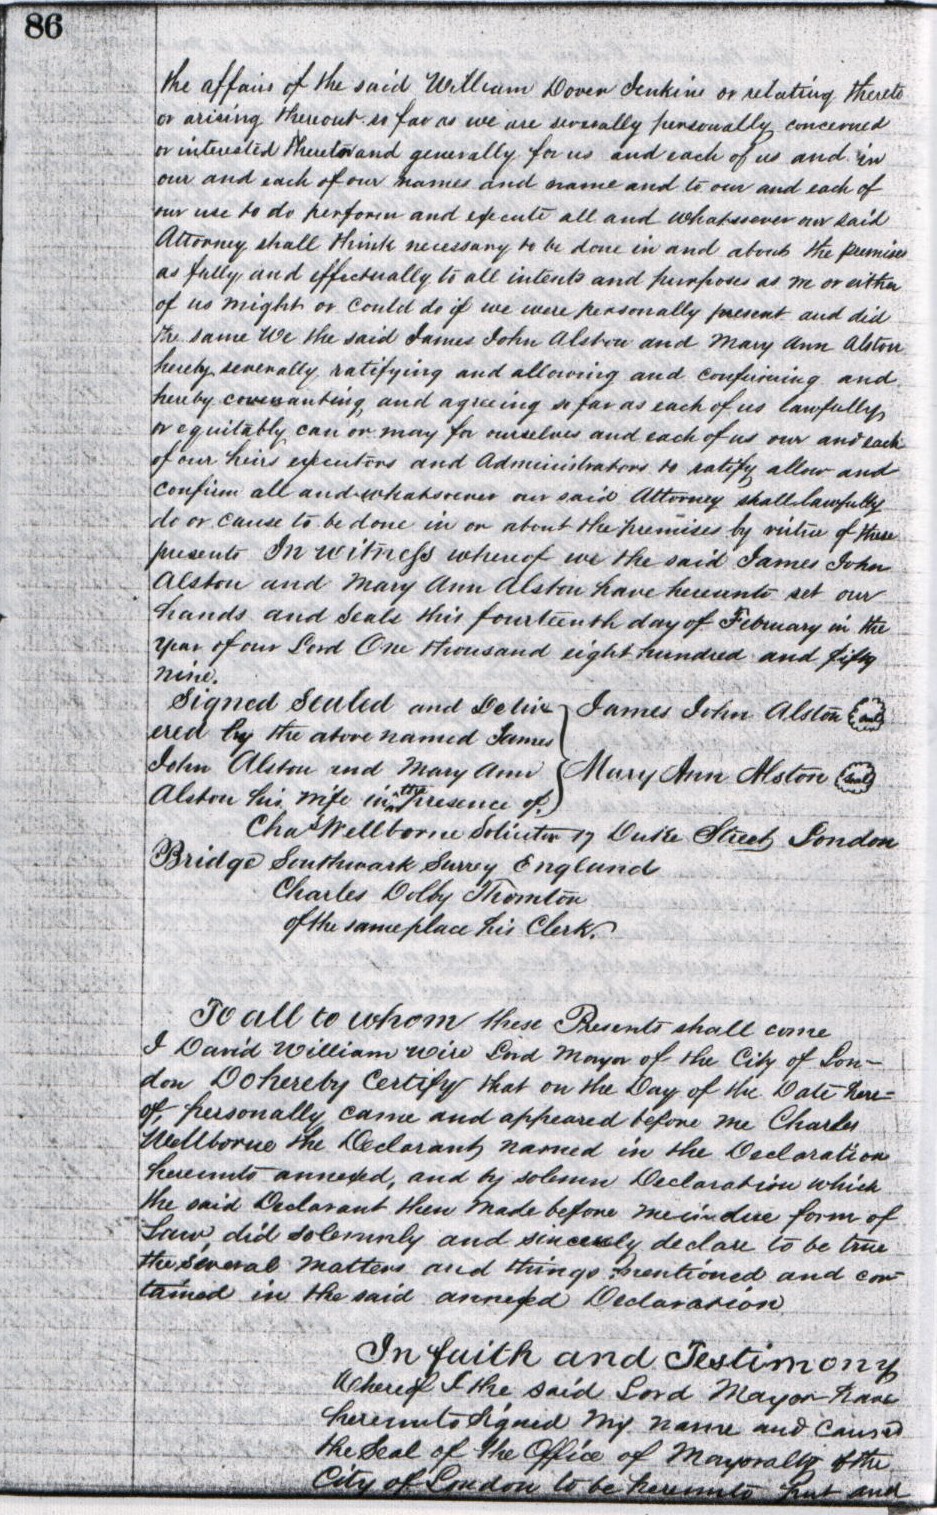 86
the affairs of the said William Dover Jenkins or relating thereto
or arising thereout so far as we are severally personally concerned
or interested thereto and generally for us and each of us and in
our and each of our names and name and to our and each of
our use to do perform and execute all and whatsoever our said
Attorney shall think necessary to be done in and about the premises
as fully and effectually to all intents and purposes as we or either
of us might or could do if we were personally present and did
the same We the said James John Alston and Mary Ann Alston
hereby severally ratifying and allowing and confirming and
hereby covenanting and agreeing so far as each of us lawfully
or equitably can or may for ourselves and each of us our and each
of our heirs executors and Administrators to ratify allow and
confirm all and whatsoever our said Attorney shall lawfully
do or cause to be done in or about the premises by virtue of these
presents In witness whereof we the said James John
Alston and Mary Ann Alston have hereunto set our
hands and Seals this fourteenth day of February in the
Year of our Lord One thousand eight hundred and fifty
nine.
Signed Sealed and Deliv James John Alston seal
ered by the above named James
John Alston and Mary Ann Mary Ann Alston seal
Alston his wife in the presence of
Chas Wellborne Solicitor 17 Duke Street London
Bridge Southwark Surrey England
Charles Dolby Thornton
of the same place his Clerk.
To all to whom these Presents shall come
I David William Wire Lord Mayor of the City of Lon-
don Do hereby Certify that on the Day of the Date here=
of personally came and appeared before me Charles
Wellborne the Declarant named in the Declaration
hereunto annexed, and by solemn Declaration which
the said Declarant then made before me in due form of
Law did solemnly and sincerely declare to be true
the several matters and things mentioned and con-
tained in the said annexed Declaration
In faith and Testimony
Whereof I the said Lord Mayor have
hereunto signed my name and caused
the Seal of the Office of Mayoralty of the
City of London to be hereunto put and